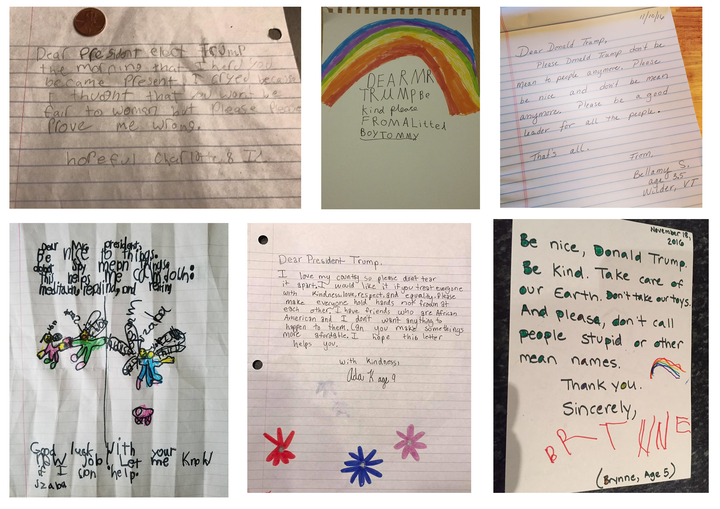 Dear President elect Trump
the morning that I herd you
became Present, I cryed because
I thught that you wont be
fair to woman but Please Please
Prove me wrong.
hopeful, Charlotte &
DEAR MR
TRUMP Be
kind please
FROM A Litted
BOY TOMMY
11/16/16
Dear Donald Trump,
Please Donald Trump don't be
mean to people anymore. Please
be nice and don't be mean
anymore. Please be a good
leader for all the people.
That's all.
From,
Bellamy S.
age 3.5
Wilder, VT
Dear Mr. president,
Be nice to things.
dont say mean things.
This helps me calm doun:
meditating, reading, and resting
Good luck with your
new job. Let me know
if I can help.
Szaba
Dear President Trump,
I love my country so please don't tear
it apart. I would like it if you treat everyone
with kindness, love, respect, and equality. Please
make everyone hold hands not frown at
each other. I have friends who are African
American and I don't want anything to
happen to them. Can you make somethings
more afordable. I hope this letter
helps you.
with kindness,
Ada K age 9
November 18,
2016
Be nice, Donald Trump.
Be Kind. Take care of
our Earth. Don't take our toys.
And please, don't call
people stupid or other
mean names.
Thank you.
Sincerely,
BRYNNE
(Brynne, Age 5)